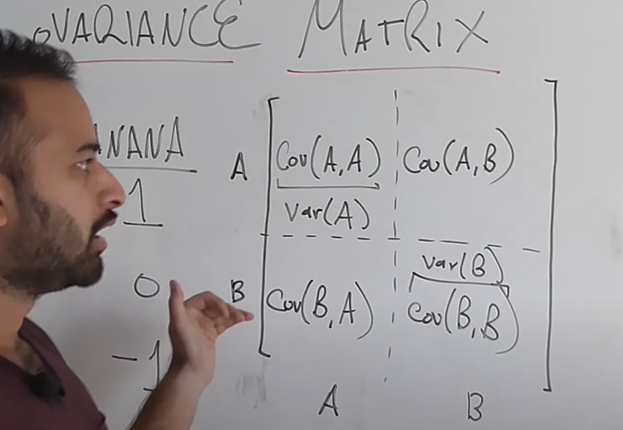 OVARIANCE MATRIX
NANA
1
0
-1
A Cov(A,A) Cov(A,B)
Var(A)
Var(B)
B Cov(B,A) Cov(B,B)
A B